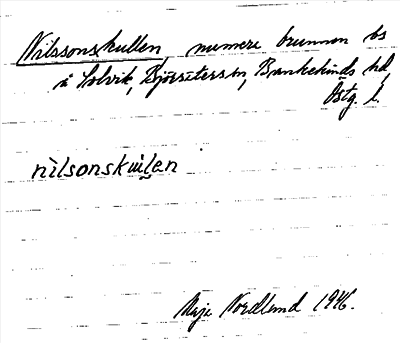 Nilssonskullen, numera brunnen bs
å Solvik, Björsäters sn, Bankekinds hd,
Östg. l.
nilsonskulen
Maja Nordlund 1946.